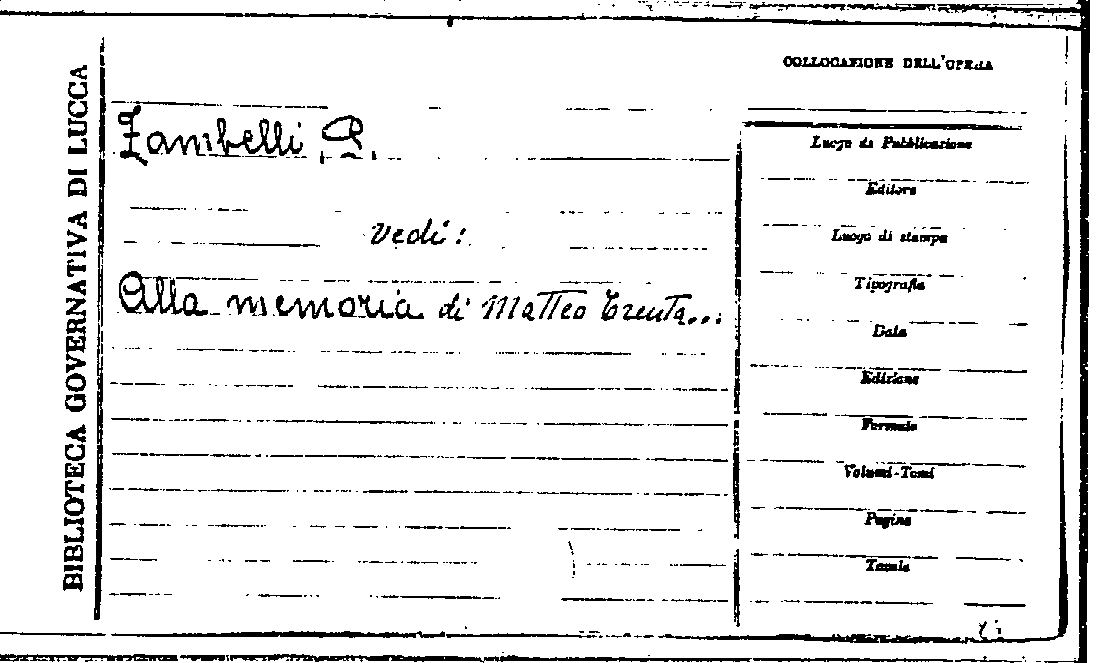 BIBLIOTECA GOVERNATIVA DI LUCCA
COLLOCAZIONE DELL'OPERA
Zambelli, P.
vedi:
Alla memoria di Matteo Trenta...
Luogo di Pubblicazione
Editore
Luogo di stampa
Tipografia
Data
Edizione
Formato
Volumi-Tomi
Pagine
Tavole